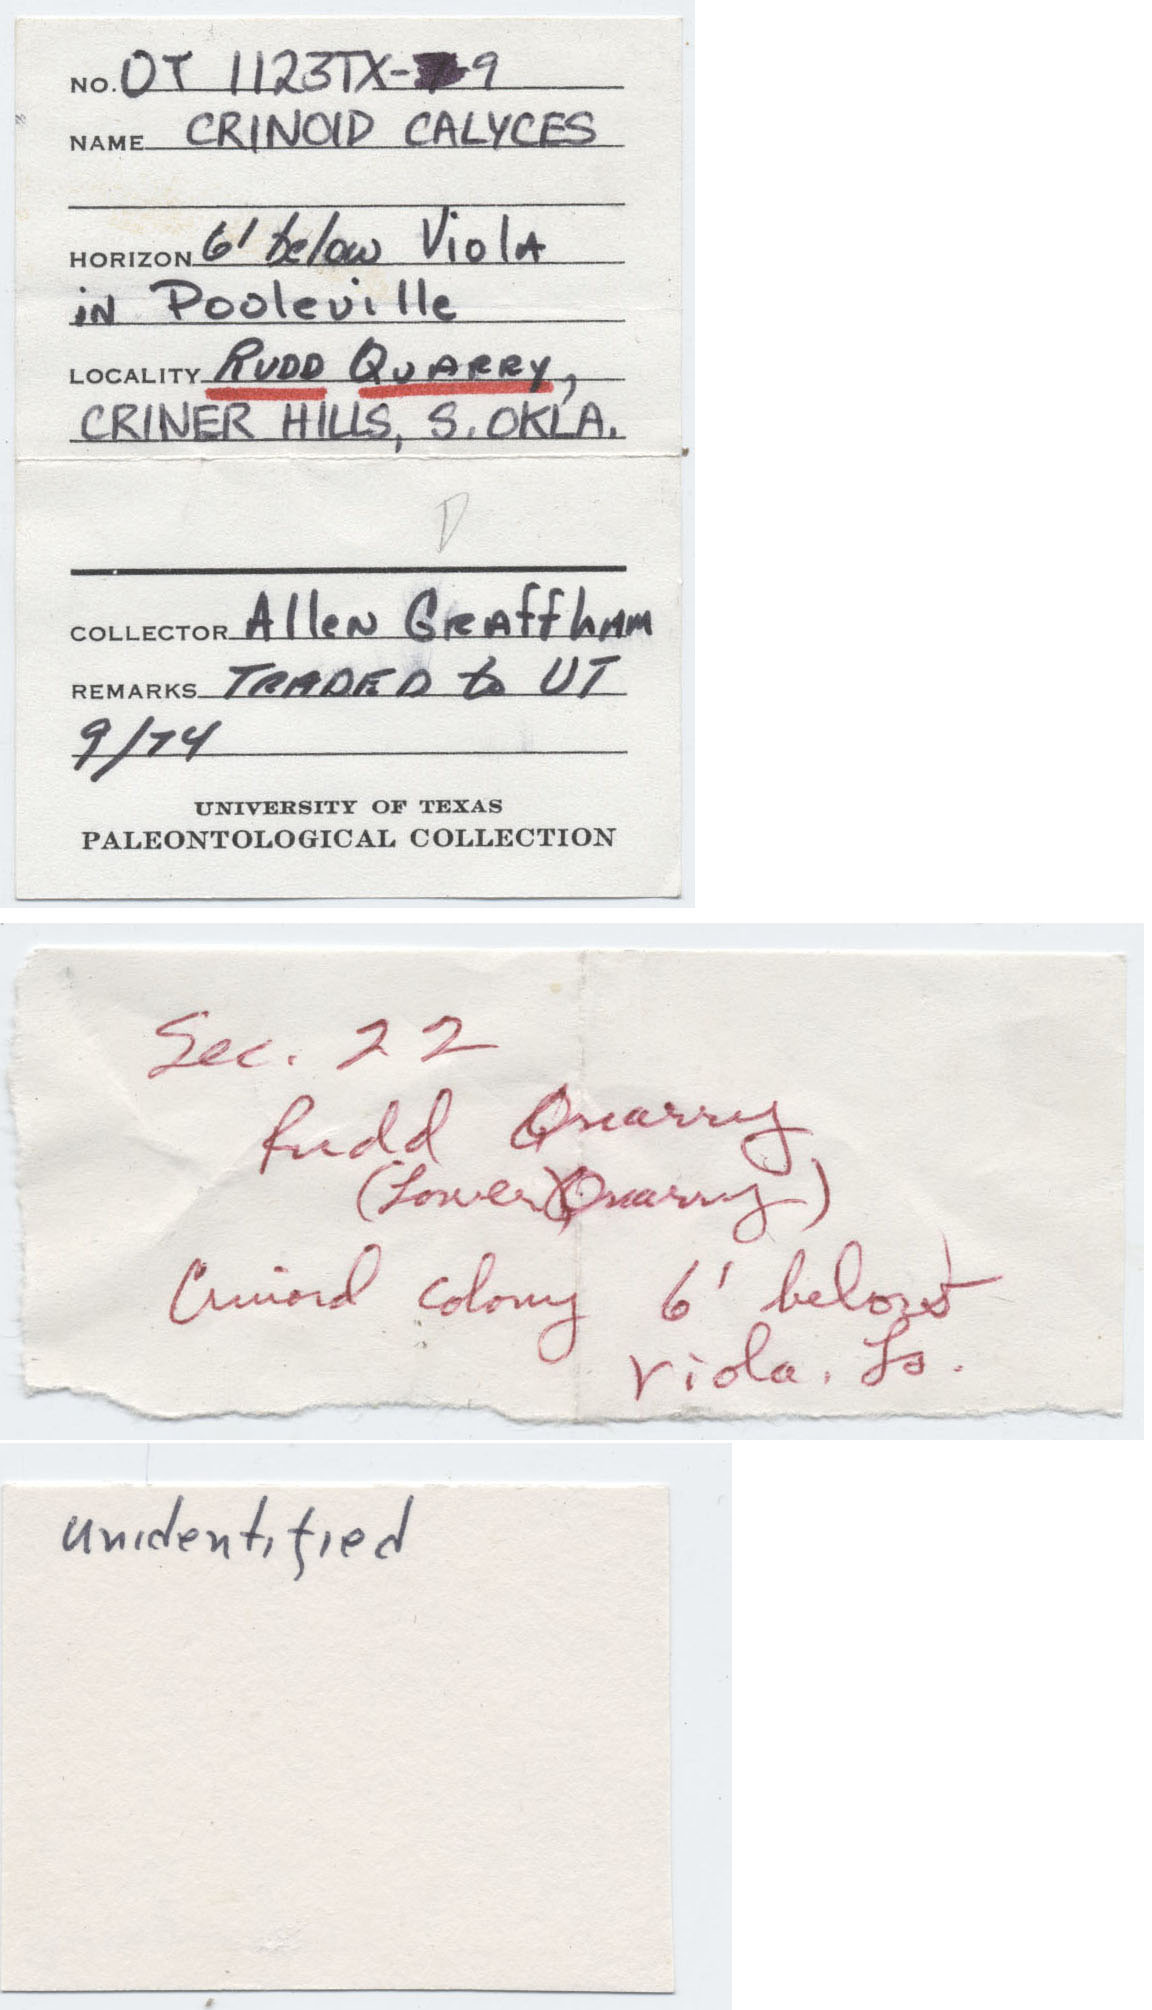 NO. OT 1123TX-9
NAME CRINOID CALYCES
HORIZON 6' below Viola
in Pooleville
LOCALITY RUDD QUARRY,
CRINER HILLS, S. OKLA.
COLLECTOR Allen Graffham
REMARKS TRADED to UT
9/74
UNIVERSITY OF TEXAS
PALEONTOLOGICAL COLLECTION
Sec. 22
Rudd Quarry
(Lower Quarry)
Crinoid colony 6' below
Viola. Ls.
unidentified